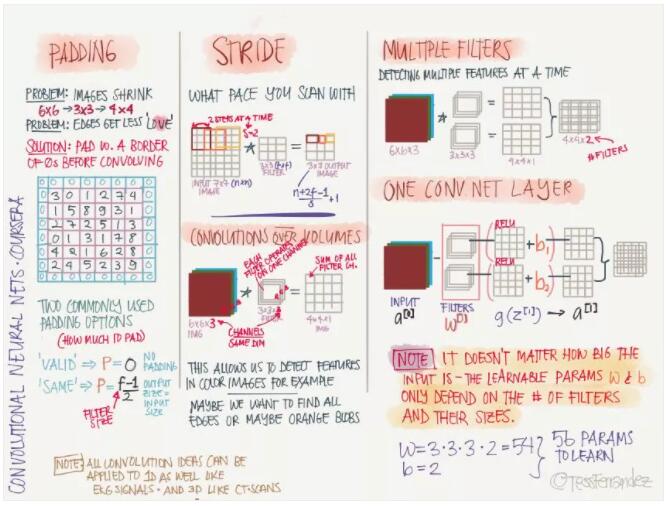 CONVOLUTIONAL NEURAL NETS · COURSERA
PADDING
PROBLEM: IMAGES SHRINK
6x6 → 3x3 → 4x4
PROBLEM: EDGES GET LESS 'LOVE'
SOLUTION: PAD W. A BORDER
OF 0s BEFORE CONVOLVING
0 0 0 0 0 0 0 0
0 3 0 1 2 7 4 0
0 1 5 8 9 3 1 0
0 2 7 2 5 1 3 0
0 0 1 3 1 7 8 0
0 4 2 1 6 2 8 0
0 2 4 5 2 3 9 0
0 0 0 0 0 0 0 0
TWO COMMONLY USED
PADDING OPTIONS
(HOW MUCH TO PAD)
'VALID' ⇒ P=0 NO
PADDING
'SAME' ⇒ P= f-1/2 OUTPUT
SIZE=
INPUT
SIZE
FILTER
SIZE
NOTE: ALL CONVOLUTION IDEAS CAN BE
APPLIED TO 1D AS WELL LIKE
EKG SIGNALS · AND 3D LIKE CT-SCANS
STRIDE
WHAT PACE YOU SCAN WITH
2 STEPS AT A TIME
S=2
*
=
INPUT 7x7 (nxn)
IMAGE
3x3 (fxf)
FILTER
3x3 OUTPUT
IMAGE
n+2f-1/S +1
CONVOLUTIONS OVER VOLUMES
EACH
FILTER OPERATES
ON ONE CHANNEL
SUM OF ALL
FILTER CH.
*
=
6x6x3
IMG
3x3x3
FILTER
4x4x1
IMG
CHANNELS
SAME DIM
THIS ALLOWS US TO DETECT FEATURES
IN COLOR IMAGES FOR EXAMPLE
MAYBE WE WANT TO FIND ALL
EDGES OR MAYBE ORANGE BLOBS
MULTIPLE FILTERS
DETECTING MULTIPLE FEATURES AT A TIME
*
=
=
6x6x3
3x3x3
4x4x1
4x4x2
# FILTERS
ONE CONV NET LAYER
RELU
( + b₁)
RELU
( + b₂)
INPUT
a[0]
FILTERS
W[1]
g(z[1]) → a[1]
NOTE IT DOESN'T MATTER HOW BIG THE
INPUT IS - THE LEARNABLE PARAMS W & b
ONLY DEPEND ON THE # OF FILTERS
AND THEIR SIZES.
W=3·3·3·2=54
b=2
56 PARAMS
TO LEARN
©TessFerrandez